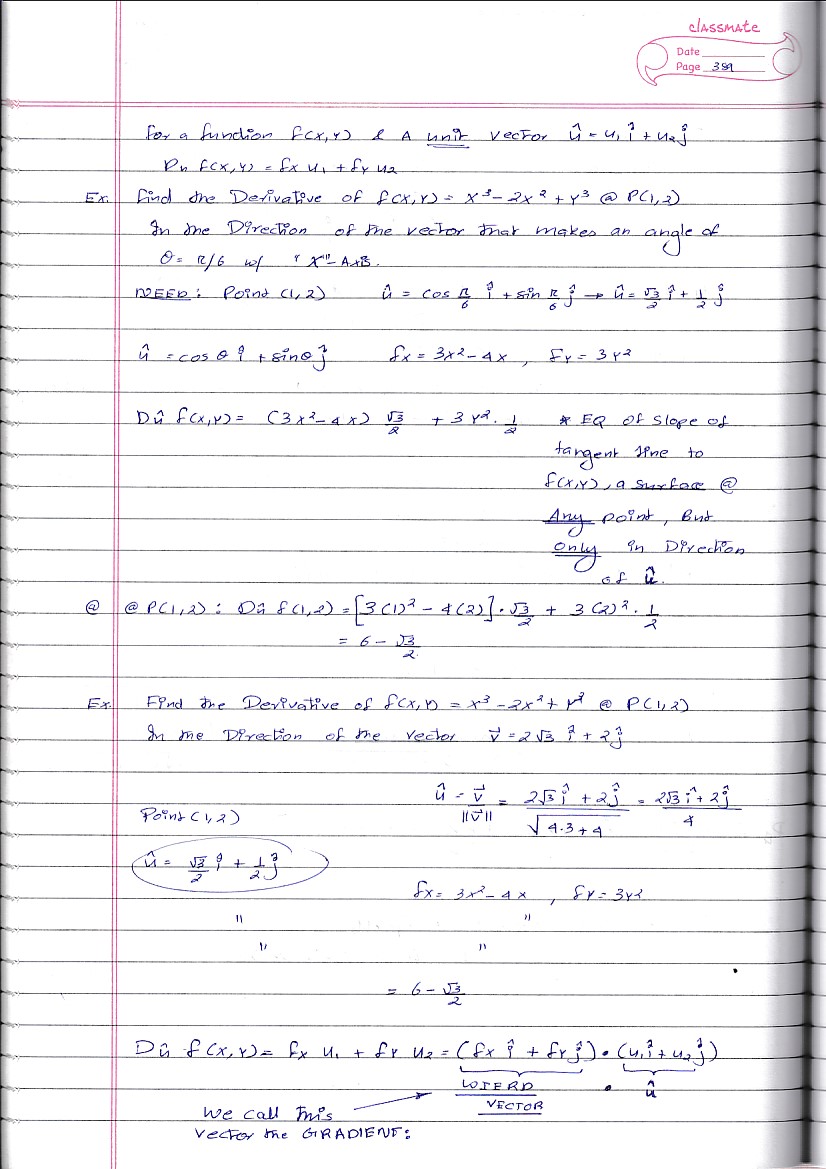 classmate
Date
Page 389
for a function f(x,y) & A unit vector û = u₁ î + u₂ ĵ
Du f(x,y) = fx u₁ + fy u₂
Ex. Find the Derivative of f(x,y) = x³ - 2x² + y³ @ P(1,2)
In the Direction of the vector that makes an angle of
θ = π/6 w/ "X"-AXIS.
NEED: Point (1,2) û = cos π/6 î + sin π/6 ĵ → û = √3/2 î + 1/2 ĵ
û = cos θ î + sin θ ĵ fx = 3x² - 4x , fy = 3y²
Dû f(x,y) = (3x² - 4x) √3/2 + 3y² · 1/2 * EQ of slope of
tangent line to
f(x,y), a surface @
Any point, But
only in Direction
of û.
@ @ P(1,2) : Dû f(1,2) = [3(1)² - 4(2)] · √3/2 + 3(2)² · 1/2
= 6 - √3/2
Ex. Find the Derivative of f(x,y) = x³ - 2x² + y³ @ P(1,2)
In the Direction of the vector v⃗ = 2√3 î + 2ĵ
û = v⃗/||v⃗|| = (2√3 î + 2ĵ)/√(4·3+4) = (2√3 î + 2ĵ)/4
Point (1,2)
û = √3/2 î + 1/2 ĵ
fx = 3x² - 4x , fy = 3y²
" "
" "
= 6 - √3/2
Dû f(x,y) = fx u₁ + fy u₂ = (fx î + fy ĵ) • (u₁ î + u₂ ĵ)
WIERD • û
VECTOR
We call this
vector the GRADIENT: